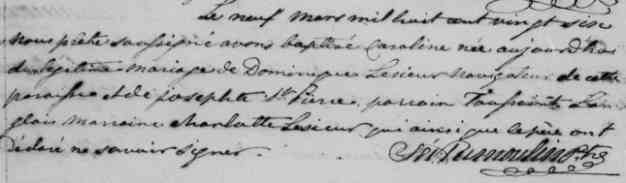 Le neuf mars mil huit cent vingt six
nous prêtre soussigné avons baptisé Caroline née aujourd'hui
du légitime mariage de Dominique Lesieur Navigateur de cette
paroisse et de Josephte St Pierre, parrain Toussaint Lan
glais marraine Charlotte Lesieur qui ainsi que le père ont
déclaré ne savoir signer.
Dumoulin Ptre